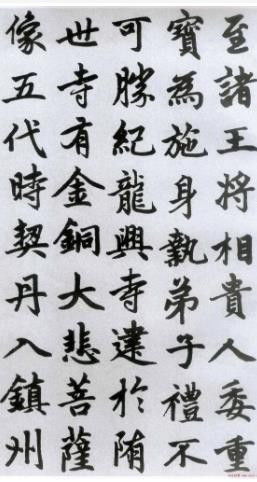 至諸王將相貴人委重
寶為施身執弟子禮不
可勝紀龍興寺建於隋
世寺有金銅大悲菩薩
像五代時契丹入鎮州